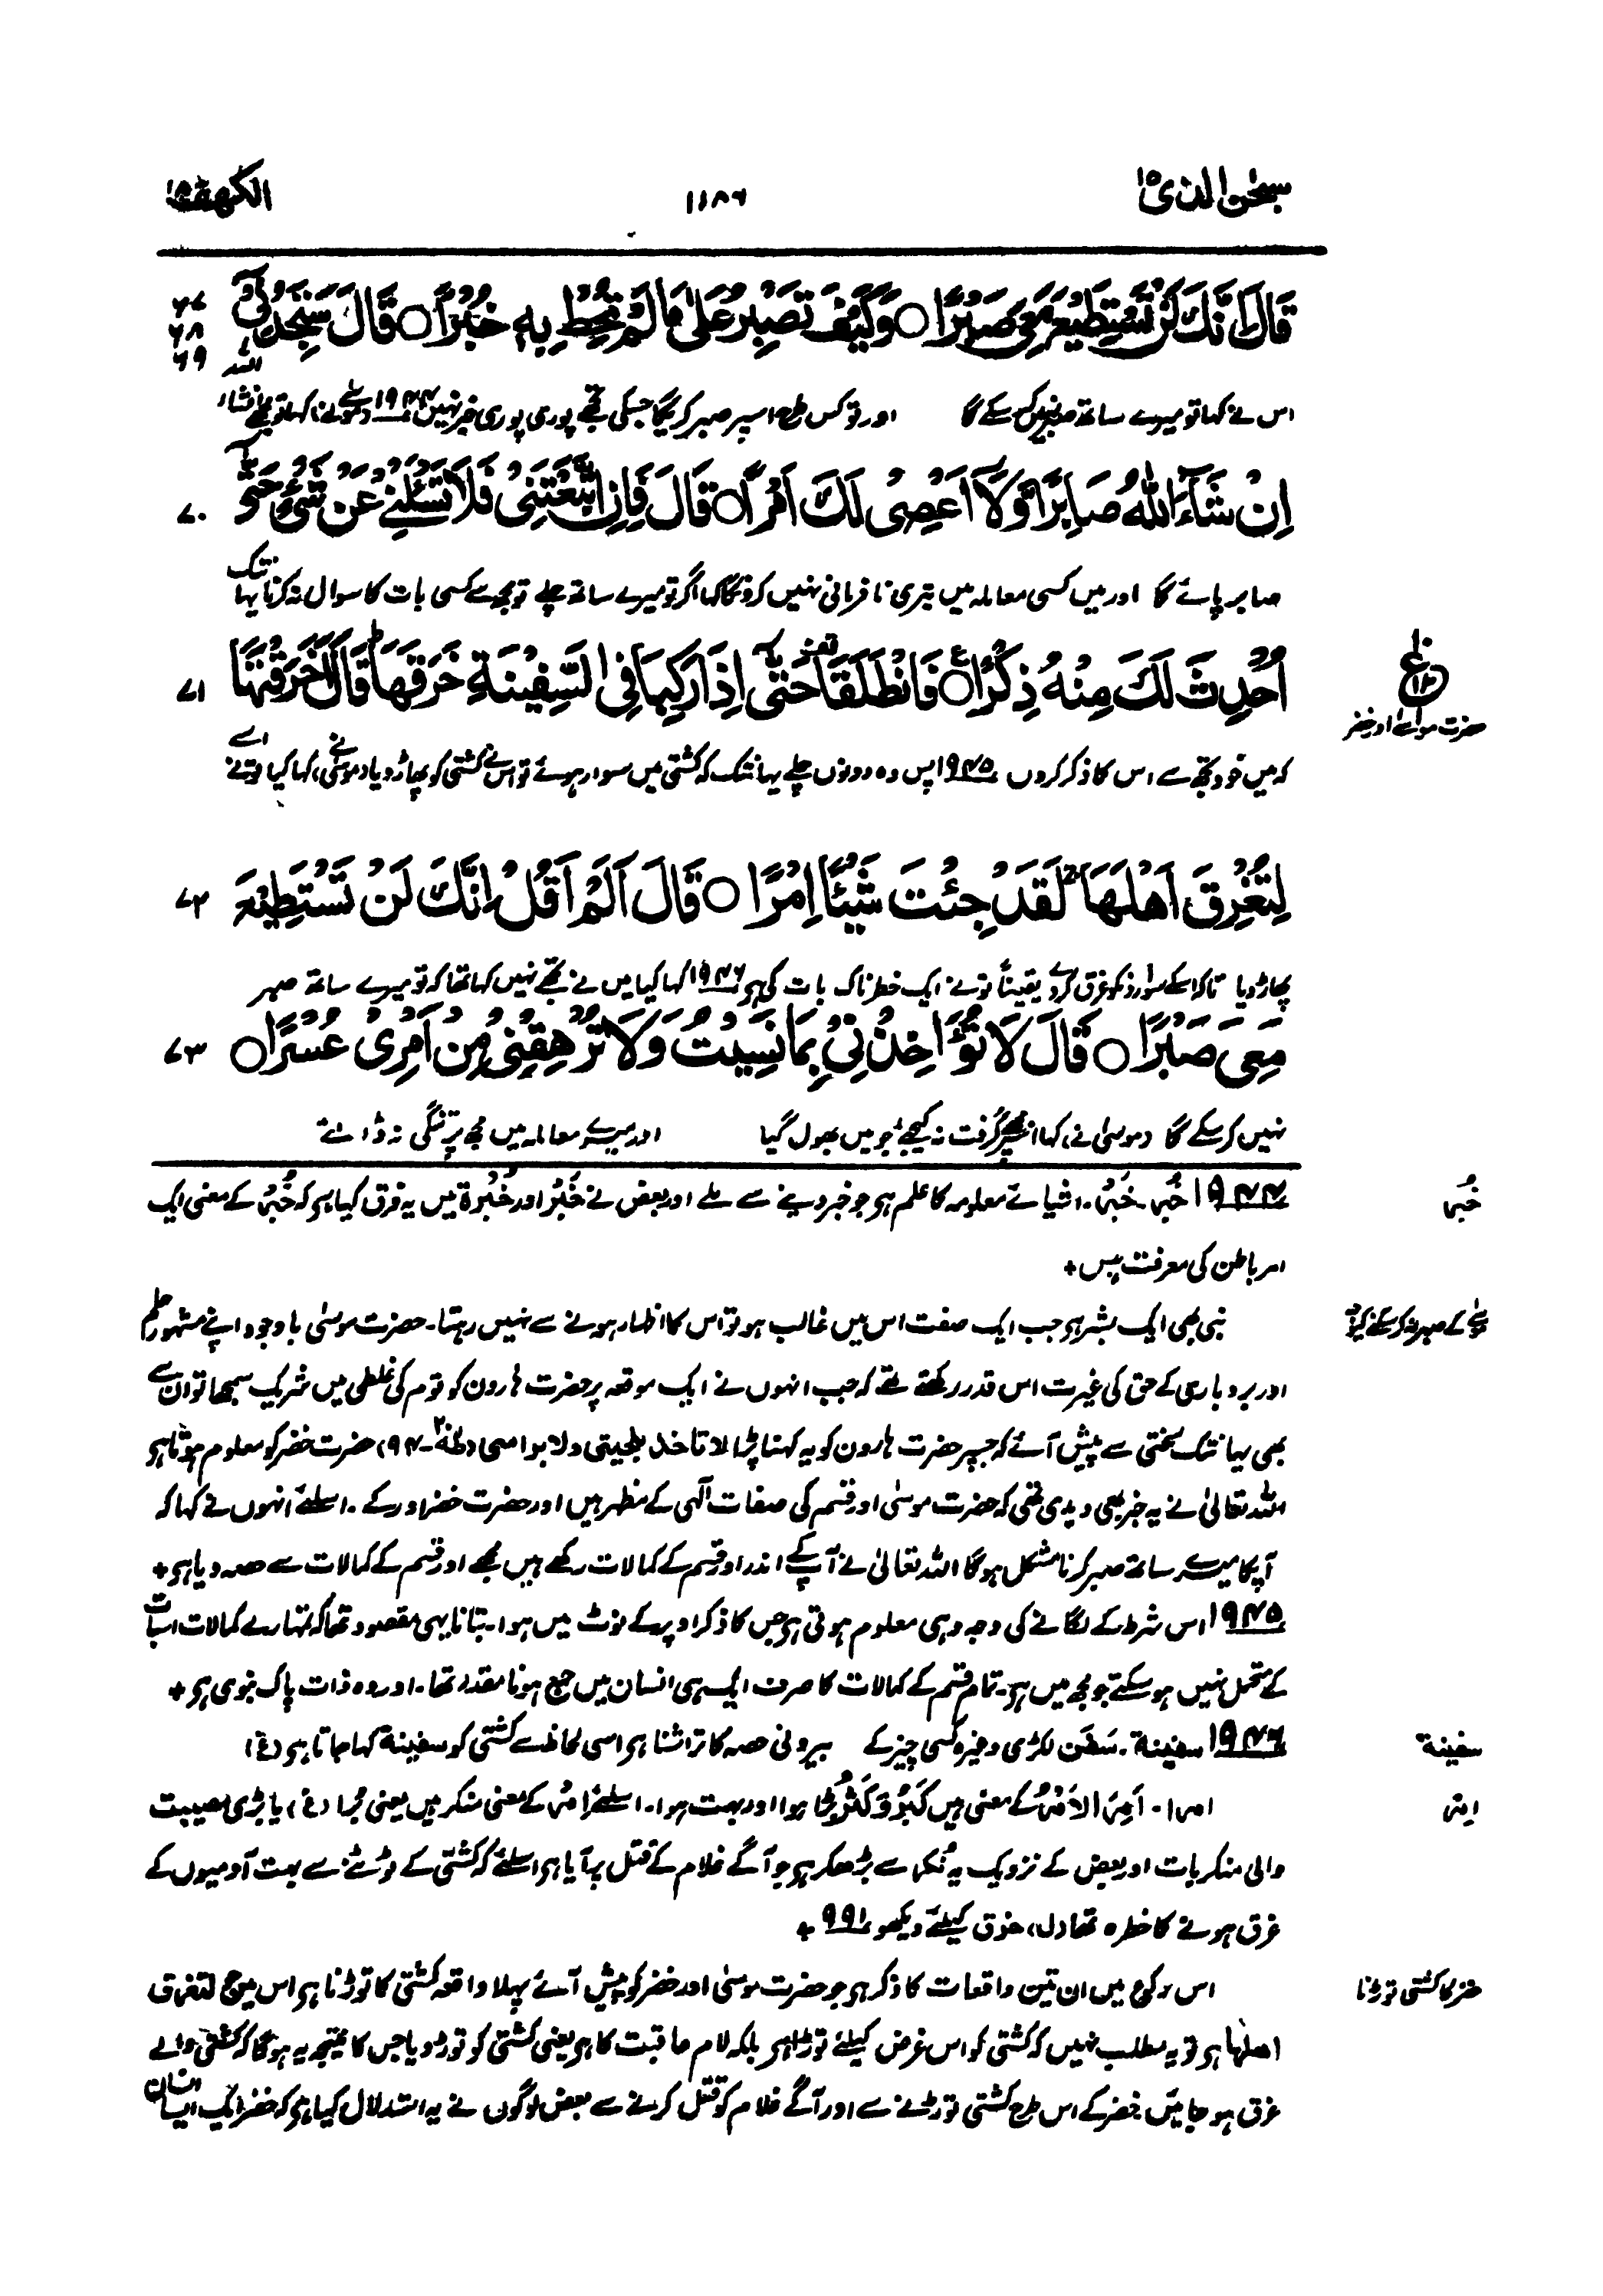 سبحٰن الذی ۱۵
۱۱۸۶
الکھف ۱۸
قَالَ اِنَّكَ لَنْ تَسْتَطِيْعَ مَعِیَ صَبْرًا ○ وَكَيْفَ تَصْبِرُ عَلٰى مَا لَمْ تُحِطْ بِهٖ خُبْرًا ○ قَالَ سَتَجِدُنِيْٓ
۶۷
۶۸
۶۹
اس نے کہا تو میرے ساتھ صبر نہیں کر سکے گا اور تو کس طرح اسپر صبر کریگا جسکی تجھے پوری پوری خبر نہیں ۱۹۴۴ (موسیٰ نے) کہا تو مجھے انشاء اللہ
اِنْ شَآءَ اللّٰهُ صَابِرًا وَّلَآ اَعْصِیْ لَكَ اَمْرًا ○ قَالَ فَاِنِ اتَّبَعْتَنِیْ فَلَا تَسْـَٔلْنِیْ عَنْ شَیْءٍ حَتّٰٓی
۷۰
صابر پائے گا اور میں کسی معاملہ میں تیری نافرمانی نہیں کرونگا کہا اگر تو میرے ساتھ چلے تو مجھ سے کسی بات کا سوال نہ کرنا یہانتک
اُحْدِثَ لَكَ مِنْهُ ذِكْرًا ○ فَانْطَلَقَا حَتّٰٓى اِذَا رَكِبَا فِی السَّفِيْنَةِ خَرَقَهَا قَالَ اَخَرَقْتَهَا
۷۱
حضرت موسےٰ اور خضر
کہ میں خود تجھ سے اس کا ذکر کروں ۱۹۴۵ پس وہ دونوں چلے یہانتک کہ کشتی میں سوار ہوئے تو اس نے کشتی کو پھاڑ دیا (موسیٰ نے) کہا کیا تو نے اسے
لِتُغْرِقَ اَهْلَهَا لَقَدْ جِئْتَ شَيْـًٔا اِمْرًا ○ قَالَ اَلَمْ اَقُلْ اِنَّكَ لَنْ تَسْتَطِيْعَ
۷۲
پھاڑ دیا تاکہ اسکے سواروں کو غرق کر دے یقیناً تو نے ایک خطرناک بات کی ہو ۱۹۴۶ کہا کیا میں نے تجھے نہیں کہا تھا کہ تو میرے ساتھ صبر
مَعِیَ صَبْرًا ○ قَالَ لَا تُؤَاخِذْنِیْ بِمَا نَسِيْتُ وَلَا تُرْهِقْنِیْ مِنْ اَمْرِیْ عُسْرًا ○
۷۳
نہیں کر سکے گا (موسیٰ نے) کہا مجھ پر گرفت نہ کیجئے جو میں بھول گیا اور میرے معاملہ میں مجھ پر تنگی نہ ڈالئے
خُبر
۱۹۴۴ خُبر۔ خُبر۔ اشیائے معلومہ کا علم ہو جو خبر دینے سے ملے اور بعض نے خُبْر اور خُبْرۃ میں یہ فرق کیا ہو کہ خُبر کے معنی ایک
امر باطن کی معرفت ہیں +
موسےٰ کے صبر نہ کر سکنے کی وجہ
نبی بھی ایک بشر ہو جب ایک صفت اس میں غالب ہو تو اس کا اظہار ہونے سے نہیں رہتا۔ حضرت موسیٰ باوجود اپنے مشہور حلم
اور بردباری کے حق کی غیرت اس قدر رکھتے تھے کہ جب انہوں نے ایک موقعہ پر حضرت ہارون کو قوم کی غلطی میں شریک سمجھا تو ان سے
بھی یہانتک سختی سے پیش آئے کہ جسپر حضرت ہارون کو یہ کہنا پڑا لا تاخذ بلحیتی ولا براسی (طٰہٰ ۲۰-۹۴) حضرت خضر کو معلوم ہوتا ہو
اللہ تعالیٰ نے یہ خبر بھی دیدی تھی کہ حضرت موسیٰ اور قسم کی صفات الٰہی کے مظہر ہیں اور حضرت خضر اور کے۔ اسلئے انہوں نے کہا کہ
آپکا میرے ساتھ صبر کرنا مشکل ہوگا اللہ تعالیٰ نے آپ کے اندر اور قسم کے کمالات رکھے ہیں مجھے اور قسم کے کمالات سے حصہ دیا ہو +
۱۹۴۵ اس شرط کے لگانے کی وجہ وہی معلوم ہوتی ہو جس کا ذکر اوپر کے نوٹ میں ہوا۔ بتانا یہی مقصود تھا کہ تمہارے کمالات اس بات
کے متحمل نہیں ہو سکتے جو مجھ میں ہو۔ تمام قسم کے کمالات کا صرف ایک ہی انسان میں جمع ہونا مقدر تھا۔ اور وہ ذات پاک نبوی ہو +
سفینة
۱۹۴۶ سفینة۔ سَفَن لکڑی وغیرہ کسی چیز کے بیرونی حصہ کا تراشنا ہو اسی لحاظ سے کشتی کو سفینة کہا جاتا ہو (غ)
اِمر
امرا۔ اَمِرَ الاَمْرُ کے معنی ہیں كَبُرَ وَكَثُرَ بڑا ہوا اور بہت ہوا۔ اسلئے اِمر کے معنی منکر ہیں یعنی بُرا (غ) یا بڑی مصیبت
والی منکر بات اور بعض کے نزدیک یہ نُکر سے بڑھکر ہو جو آگے غلام کے قتل پر آیا ہو اسلئے کہ کشتی کے توڑنے سے بہت آدمیوں کے
غرق ہونے کا خطرہ تھا (ل) خرق کیلئے دیکھو ۹۹۱ +
خضر کا کشتی توڑنا
اس رکوع میں ان تین واقعات کا ذکر ہو جو حضرت موسیٰ اور خضر کو پیش آئے پہلا واقعہ کشتی کا توڑنا ہو اس میں جو لتغرق
اھلھا ہو تو یہ مطلب نہیں کہ کشتی کو اس غرض کیلئے توڑا ہو بلکہ لام عاقبت کا ہو یعنی کشتی کو توڑ دیا جس کا نتیجہ یہ ہوگا کہ کشتی والے
غرق ہو جائیں۔ خضر کے اس طرح کشتی توڑنے سے اور آگے غلام کو قتل کرنے سے بعض لوگوں نے یہ استدلال کیا ہو کہ خضر ایک ایسا انسان